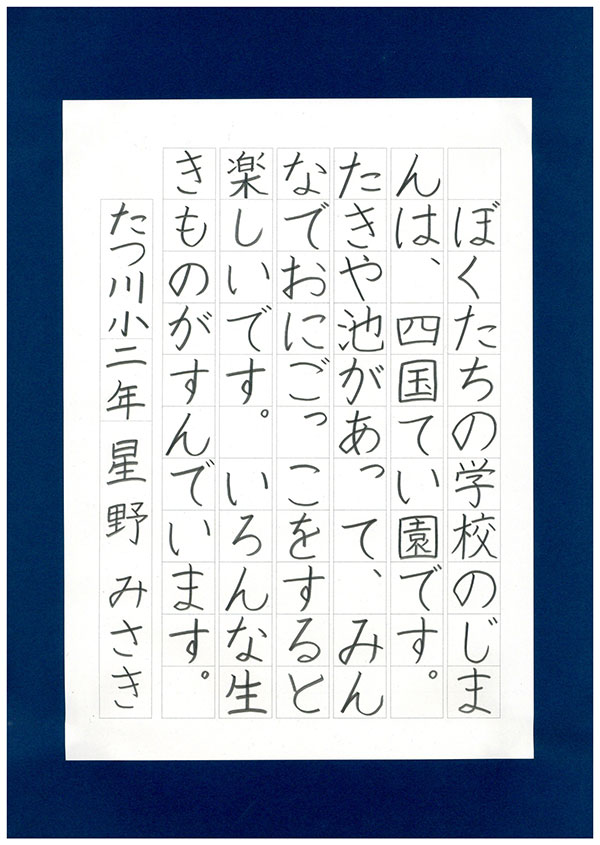 ぼくたちの学校のじま
んは、四国てい園です。
たきや池があって、みん
なでおにごっこをすると
楽しいです。いろんな生
きものがすんでいます。
たつ川小二年星野みさき